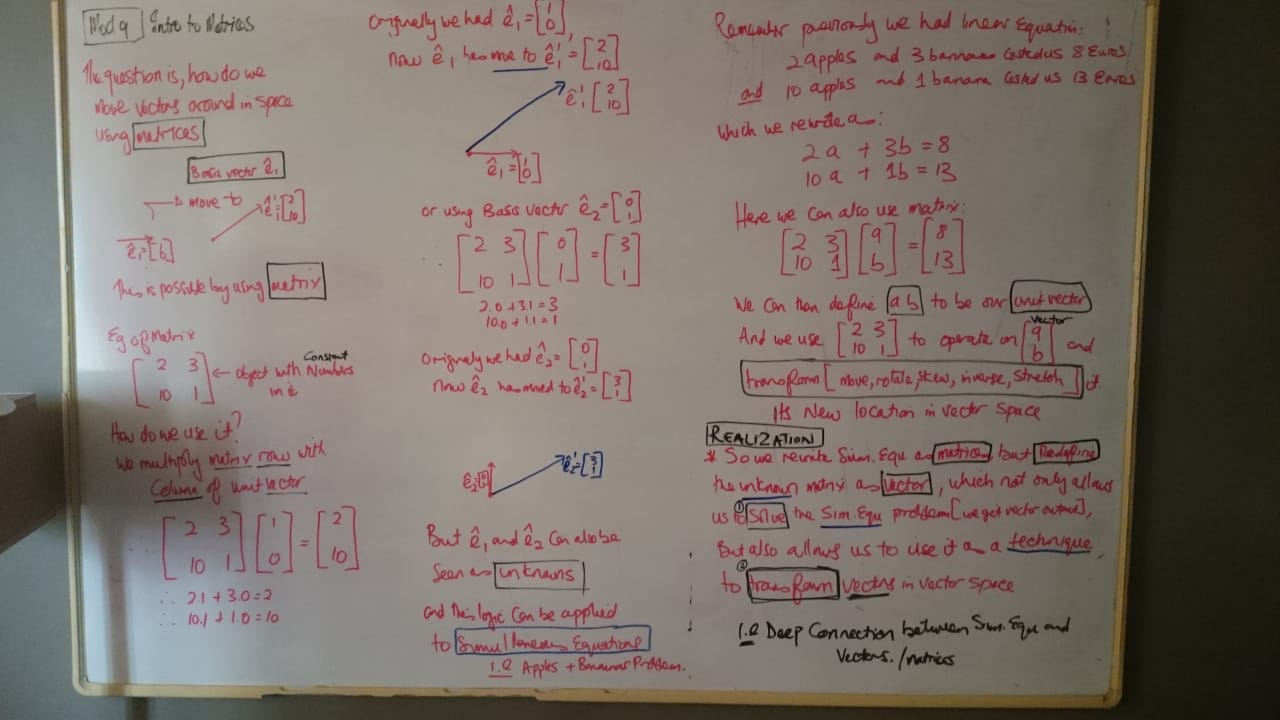 Mod 9 Intro to Matrices
The question is, how do we
move vectors around in space
using matrices
Basis vector ê₁
→ move to ê₁' [2 10]
ê₁ = [1 0]
This is possible by using matrix
Eg of Matrix
[2 3
10 1] ← object with Constant Numbers
in it
How do we use it?
We multiply matrix row with
Column of unit vector
∴ [2 3
10 1] [1 0] = [2 10]
∴ 2.1 + 3.0 = 2
∴ 10.1 + 1.0 = 10
Originally we had ê₁ = [1 0],
now ê₁ has move to ê₁' = [2 10]
ê₁' [2 10]
ê₁ = [1 0]
or using Basis Vector ê₂ = [0 1]
∴ [2 3
10 1] [0 1] = [3 1]
2.0 + 3.1 = 3
10.0 + 1.1 = 1
Originally we had ê₂ = [0 1]
now ê₂ has moved to ê₂' = [3 1]
ê₂ = [0 1]
ê₂' = [3 1]
But ê₁ and ê₂ can also be
seen as unknowns
and this logic can be applied
to Simultaneous Equations
i.e Apples + Bananas Problem.
Remember previously we had linear Equation:
2 apples and 3 bannanas costed us 8 Euros
and 10 apples and 1 banana costed us 13 Euros
which we rewrite as:
2a + 3b = 8
10a + 1b = 13
Here we can also use matrix:
[2 3
10 1] [a b] = [8 13]
We can then define a b to be our unit vector
And we use [2 3
10 1] to operate on vector [a b] and
transform [move, rotate, skew, inverse, stretch] it
its New location in vector space
REALIZATION
* So we rewrite Sim. Equ as matrices, but Redefine
the unknown matrix as vector, which not only allows
us to ① Solve the Sim. Equ problem [we get vector output],
But also allows us to use it as a technique
② to transform vectors in vector space
i.e Deep Connection between Sim. Equ and
Vectors. / matrices